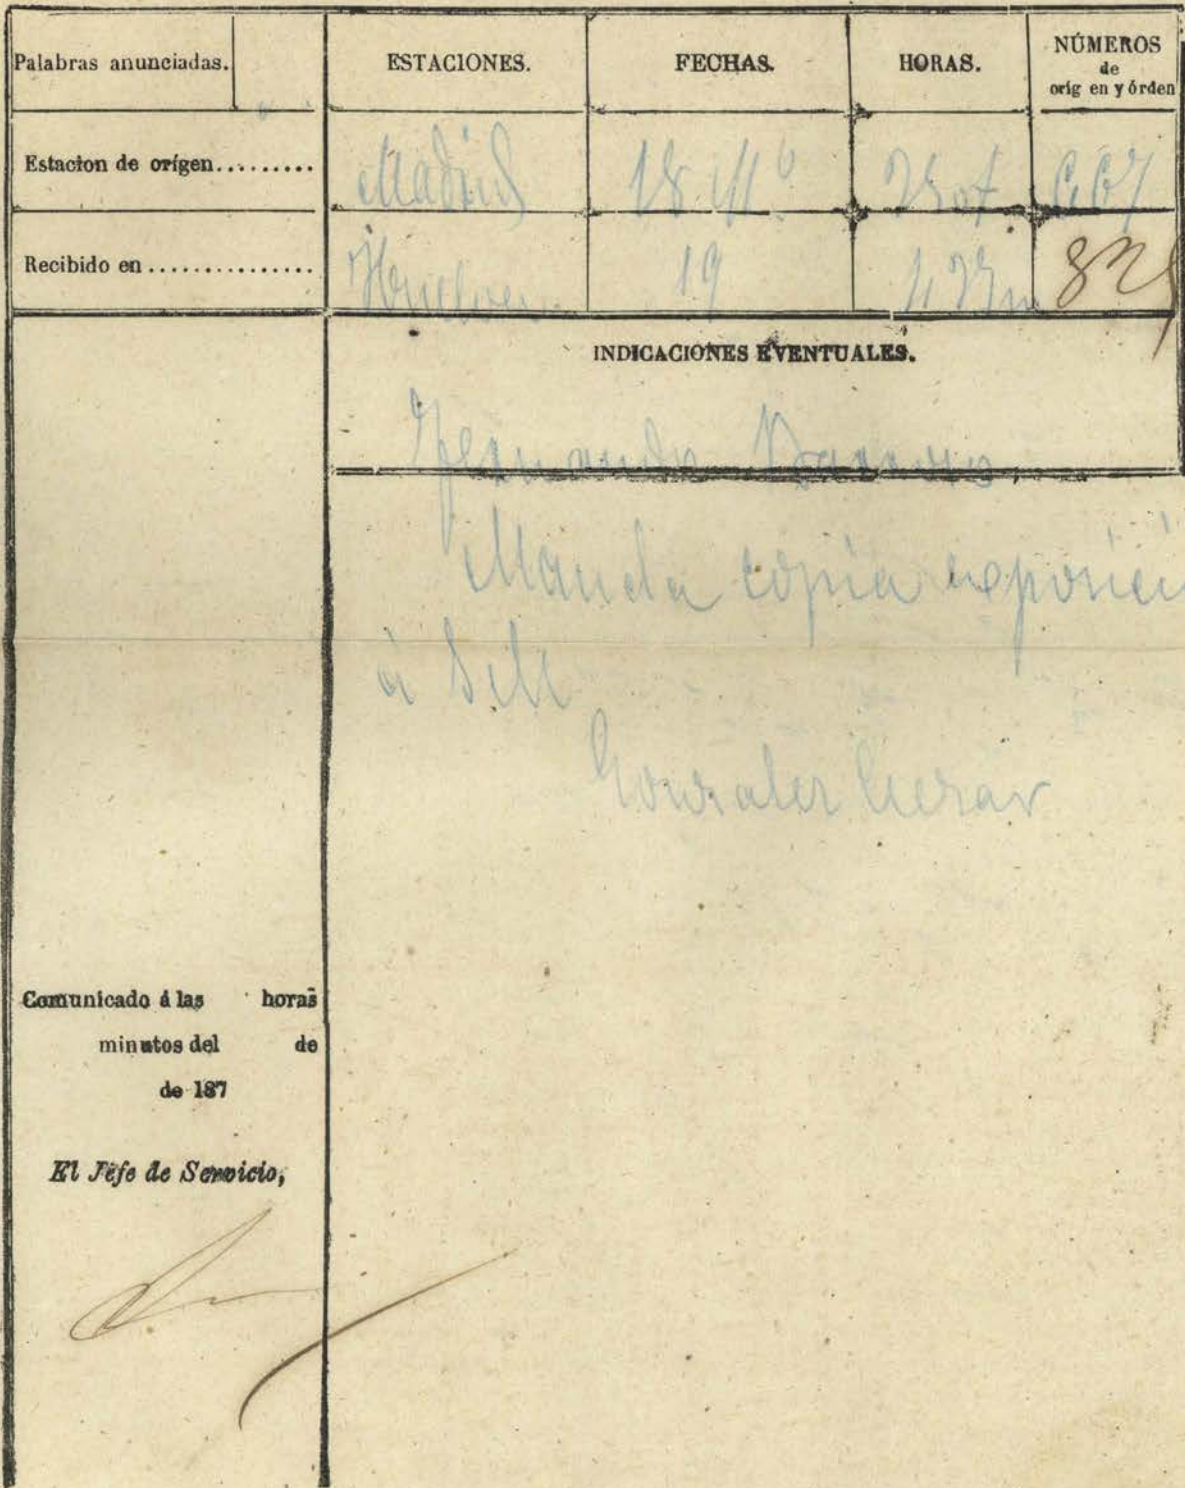 Palabras anunciadas. ESTACIONES. FECHAS. HORAS. NÚMEROS
de
orig en y órden
Estacion de orígen......... Madrid 18 667
Recibido en ............... Huelva 19 825
INDICACIONES EVENTUALES.
Fernando
Manda copia exposici
á Sell
Gonzalez
Comunicado á las horas
minutos del de
de 187
El Jefe de Servicio,